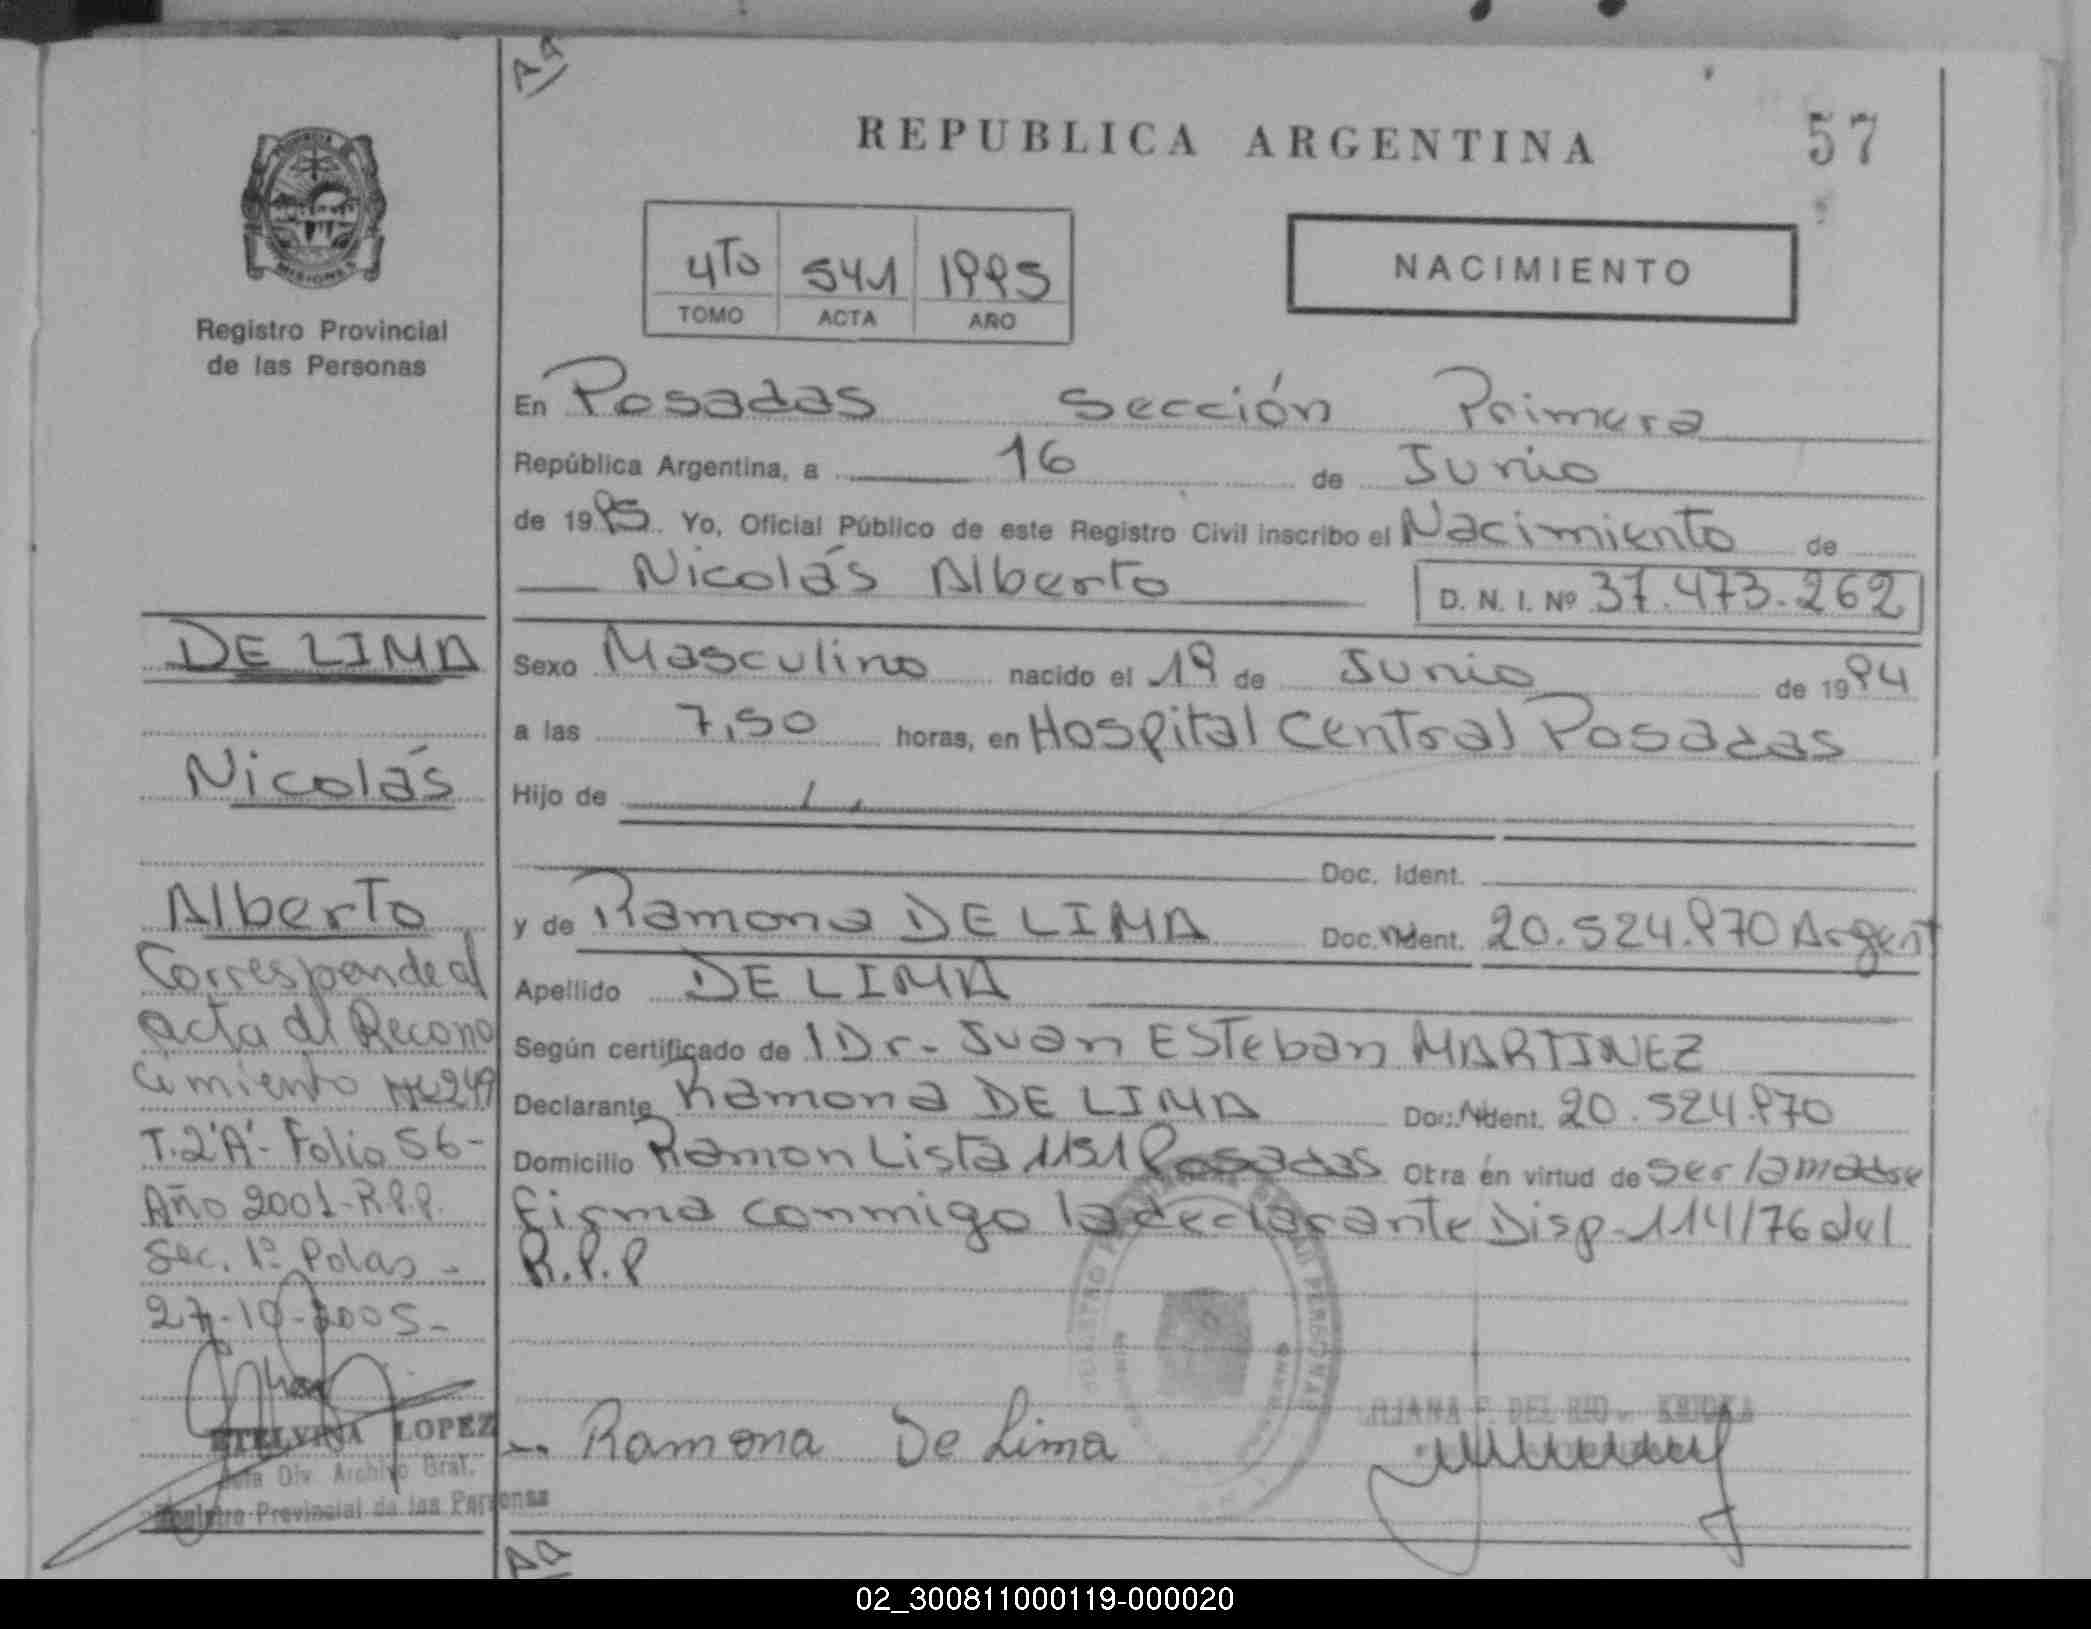 REPUBLICA ARGENTINA
57
MISIONES
Registro Provincial
de las Personas
4To 541 1995
TOMO ACTA AÑO
NACIMIENTO
En Posadas Sección Primera
República Argentina, a 16 de Junio
de 1995. Yo, Oficial Público de este Registro Civil inscribo el Nacimiento de
Nicolás Alberto D. N. I. Nº 37.473.262
Sexo Masculino nacido el 19 de Junio de 1994
a las 7,50 horas, en Hospital Central Posadas
Hijo de
Doc. Ident.
y de Ramona DE LIMA Doc. Ident. 20.524.970 Argent
Apellido DE LIMA
Según certificado de l Dr. Juan ESTeban MARTINEZ
Declarante Ramona DE LIMA Doc. Ident. 20.524.970
Domicilio Ramon Lista 1151 Posadas Otra en virtud de ser la madre
firma conmigo la declarante Disp. 114/76 del
R.P.P
DE LIMA
Nicolás
Alberto
Corresponde al
acta de Recono
cimiento Nº 249
T.2'A'- Folio 56-
Año 2001-R.P.P.
Sec. 1º Pdas -
27-10-2005-
ETELVINA LOPEZ
Jefa Div. Archivo Gral.
Registro Provincial de las Personas
Ramona De Lima
02_300811000119-000020